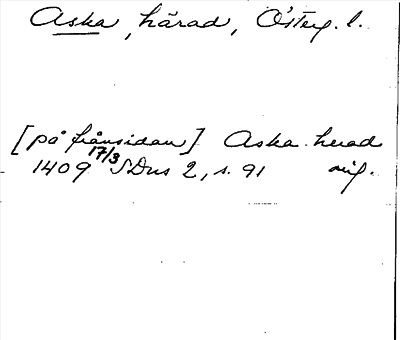 Aska, härad, Österg. l.
[på frånsidan] Aska herad
1409 17/3 SDns 2, s. 91 orig.